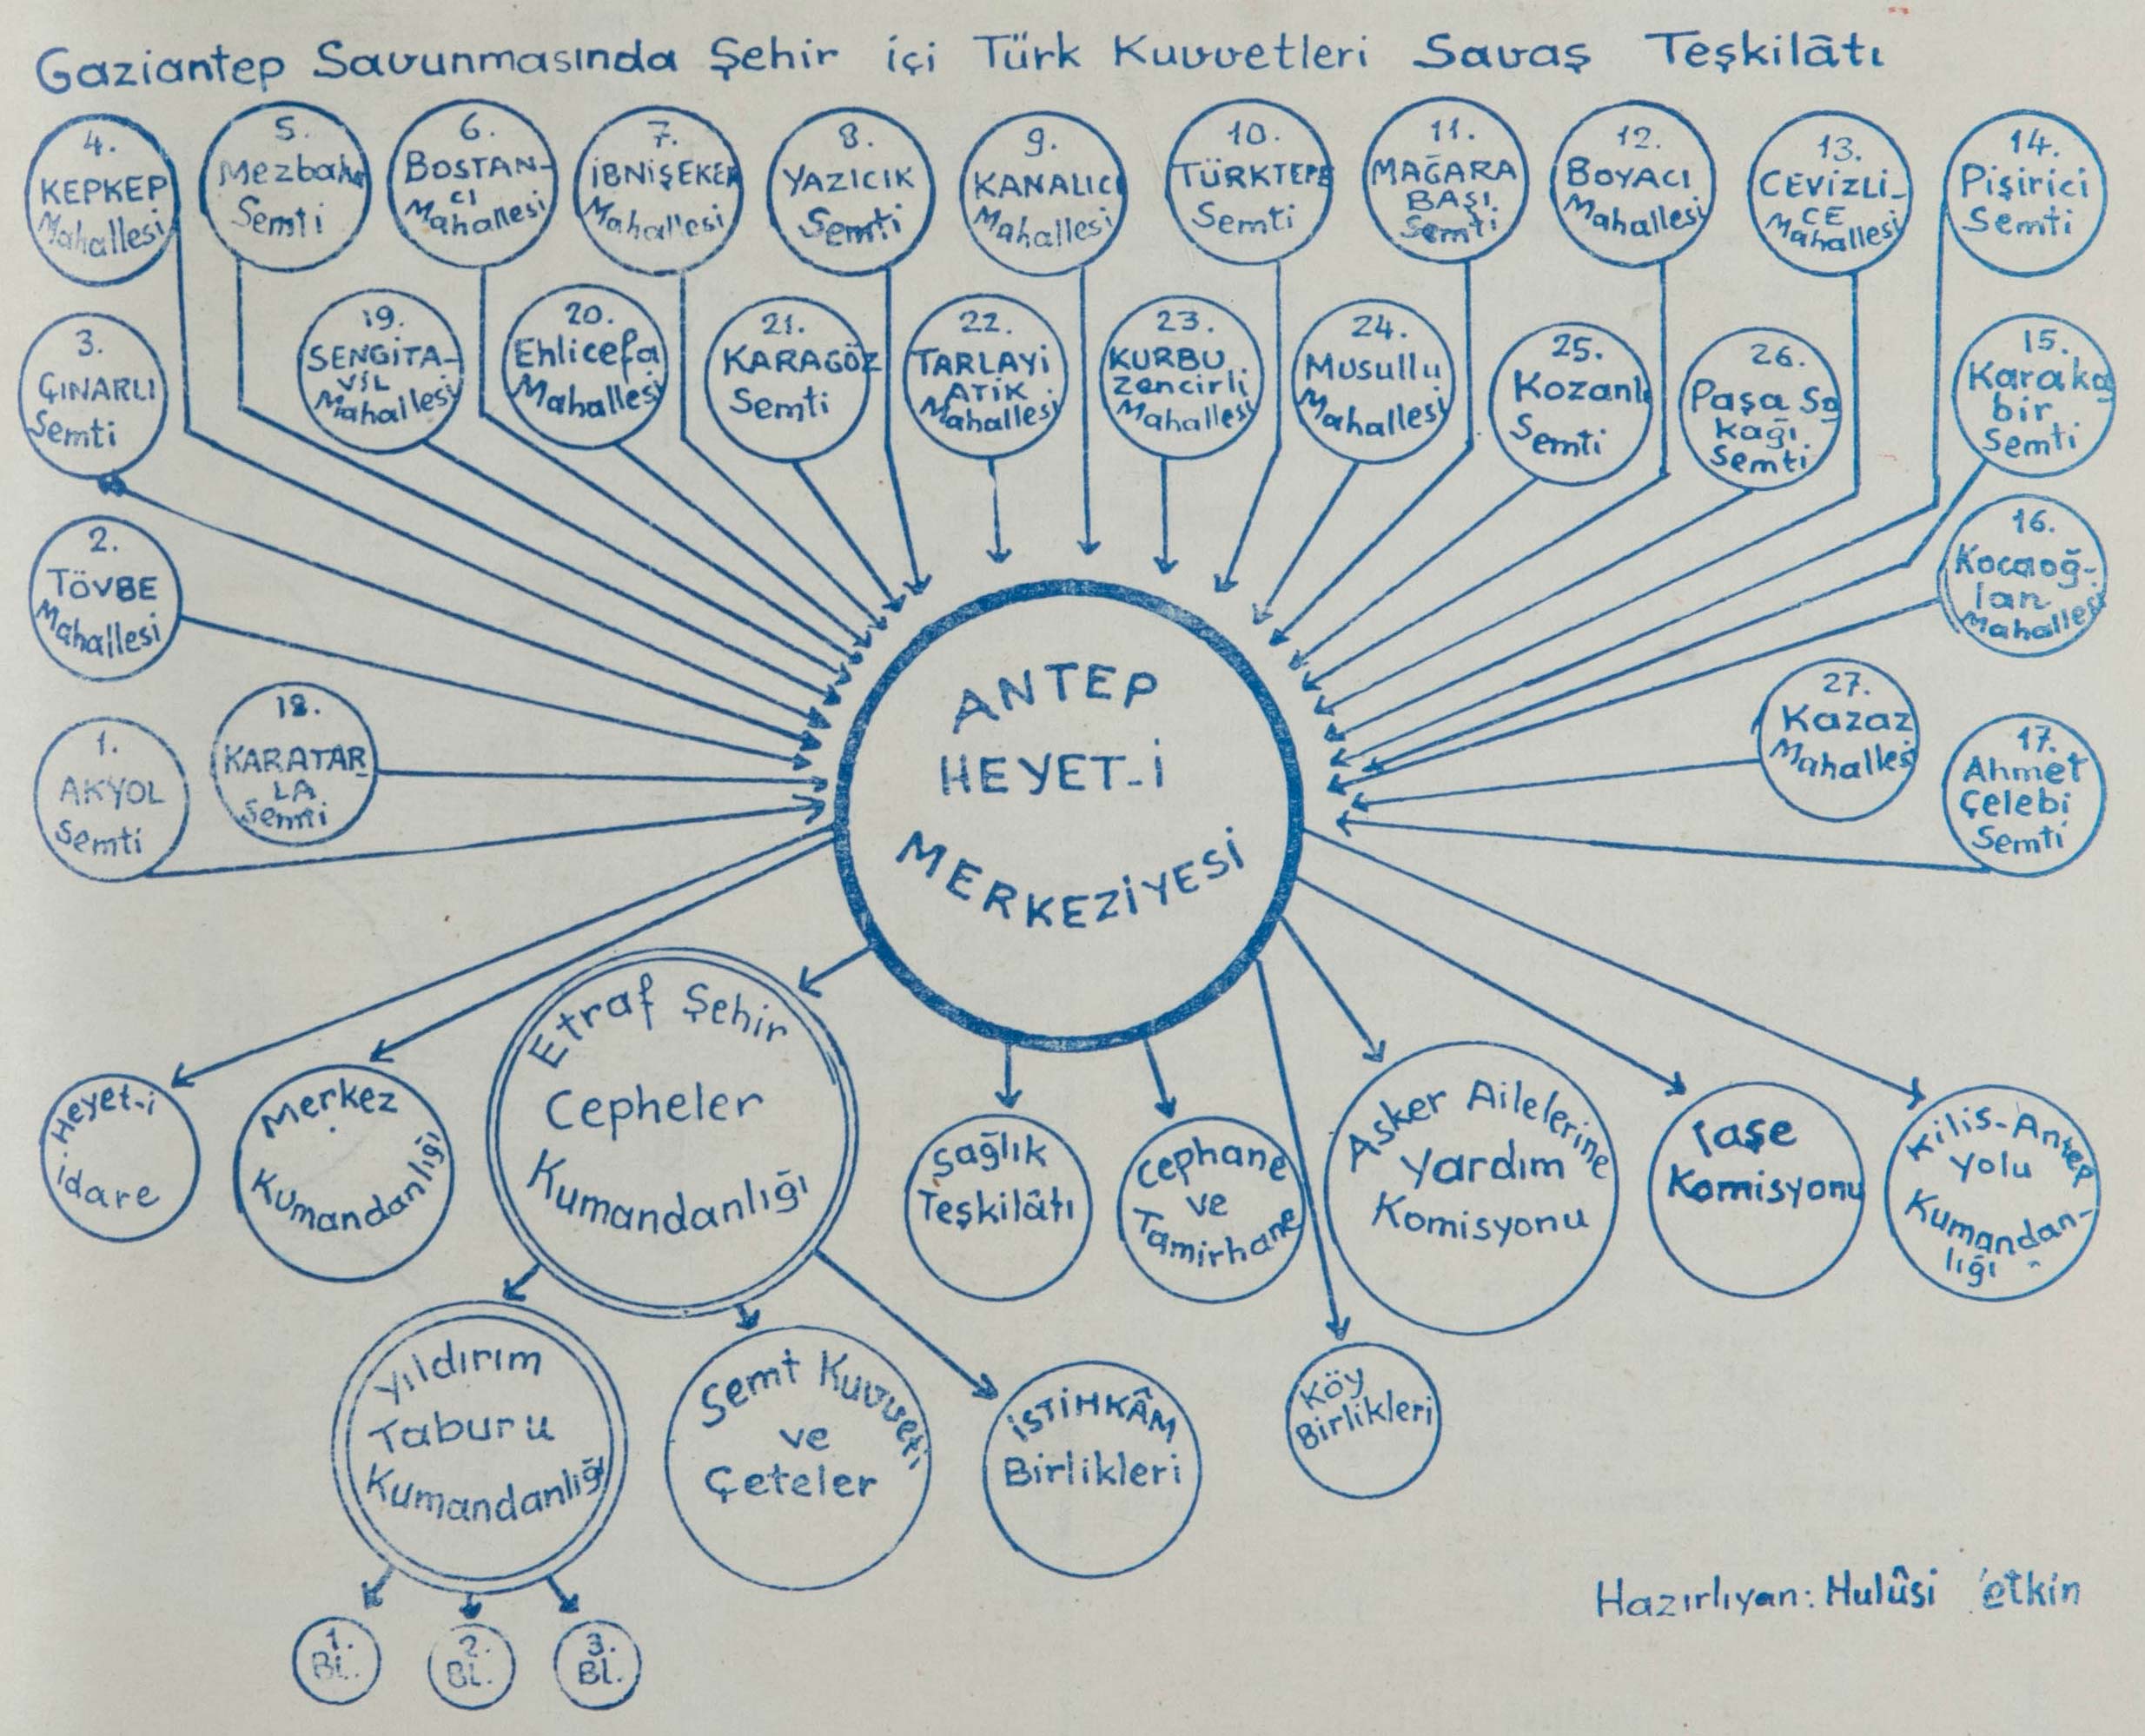 Gaziantep Savunmasında Şehir içi Türk Kuvvetleri Savaş Teşkilâtı
4.
KEPKEP
Mahallesi
5.
Mezbaha
Semti
6.
BOSTAN-
CI
Mahallesi
7.
İBNİŞEKER
Mahallesi
8.
YAZICIK
Semti
9.
KANALICI
Mahallesi
10.
TÜRKTEPE
Semti
11.
MAĞARA
BAŞI
Semti
12.
BOYACI
Mahallesi
13.
CEVİZLİ-
CE
Mahallesi
14.
Pişirici
Semti
3.
ÇINARLI
Semti
19.
SENGİTA-
VİL
Mahallesi
20.
Ehlicefa
Mahallesi
21.
KARAGÖZ
Semti
22.
TARLAYİ
ATİK
Mahallesi
23.
KURBU
Zencirli
Mahallesi
24.
Musullu
Mahallesi
25.
Kozanlı
Semti
26.
Paşa So
kağı
Semti
15.
Karaka
bir
Semti
2.
TÖVBE
Mahallesi
16.
Kocaoğ-
lan
Mahallesi
1.
AKYOL
Semti
18.
KARATAR
LA
Semti
27.
Kazaz
Mahallesi
17.
Ahmet
Çelebi
Semti
ANTEP
HEYET-İ
MERKEZİYESİ
Heyet-i
idare
Merkez
Kumandanlığı
Etraf Şehir
Cepheler
Kumandanlığı
Sağlık
Teşkilâtı
Cephane
ve
Tamirhane
Asker Ailelerine
Yardım
Komisyonu
İaşe
Komisyonu
Kilis-Antep
Yolu
Kumandan-
lığı
Yıldırım
Taburu
Kumandanlığı
Semt Kuvveti
ve
Çeteler
İSTİHKÂM
Birlikleri
Köy
Birlikleri
1.
Bl.
2.
Bl.
3.
Bl.
Hazırlıyan: Hulûsi etkin